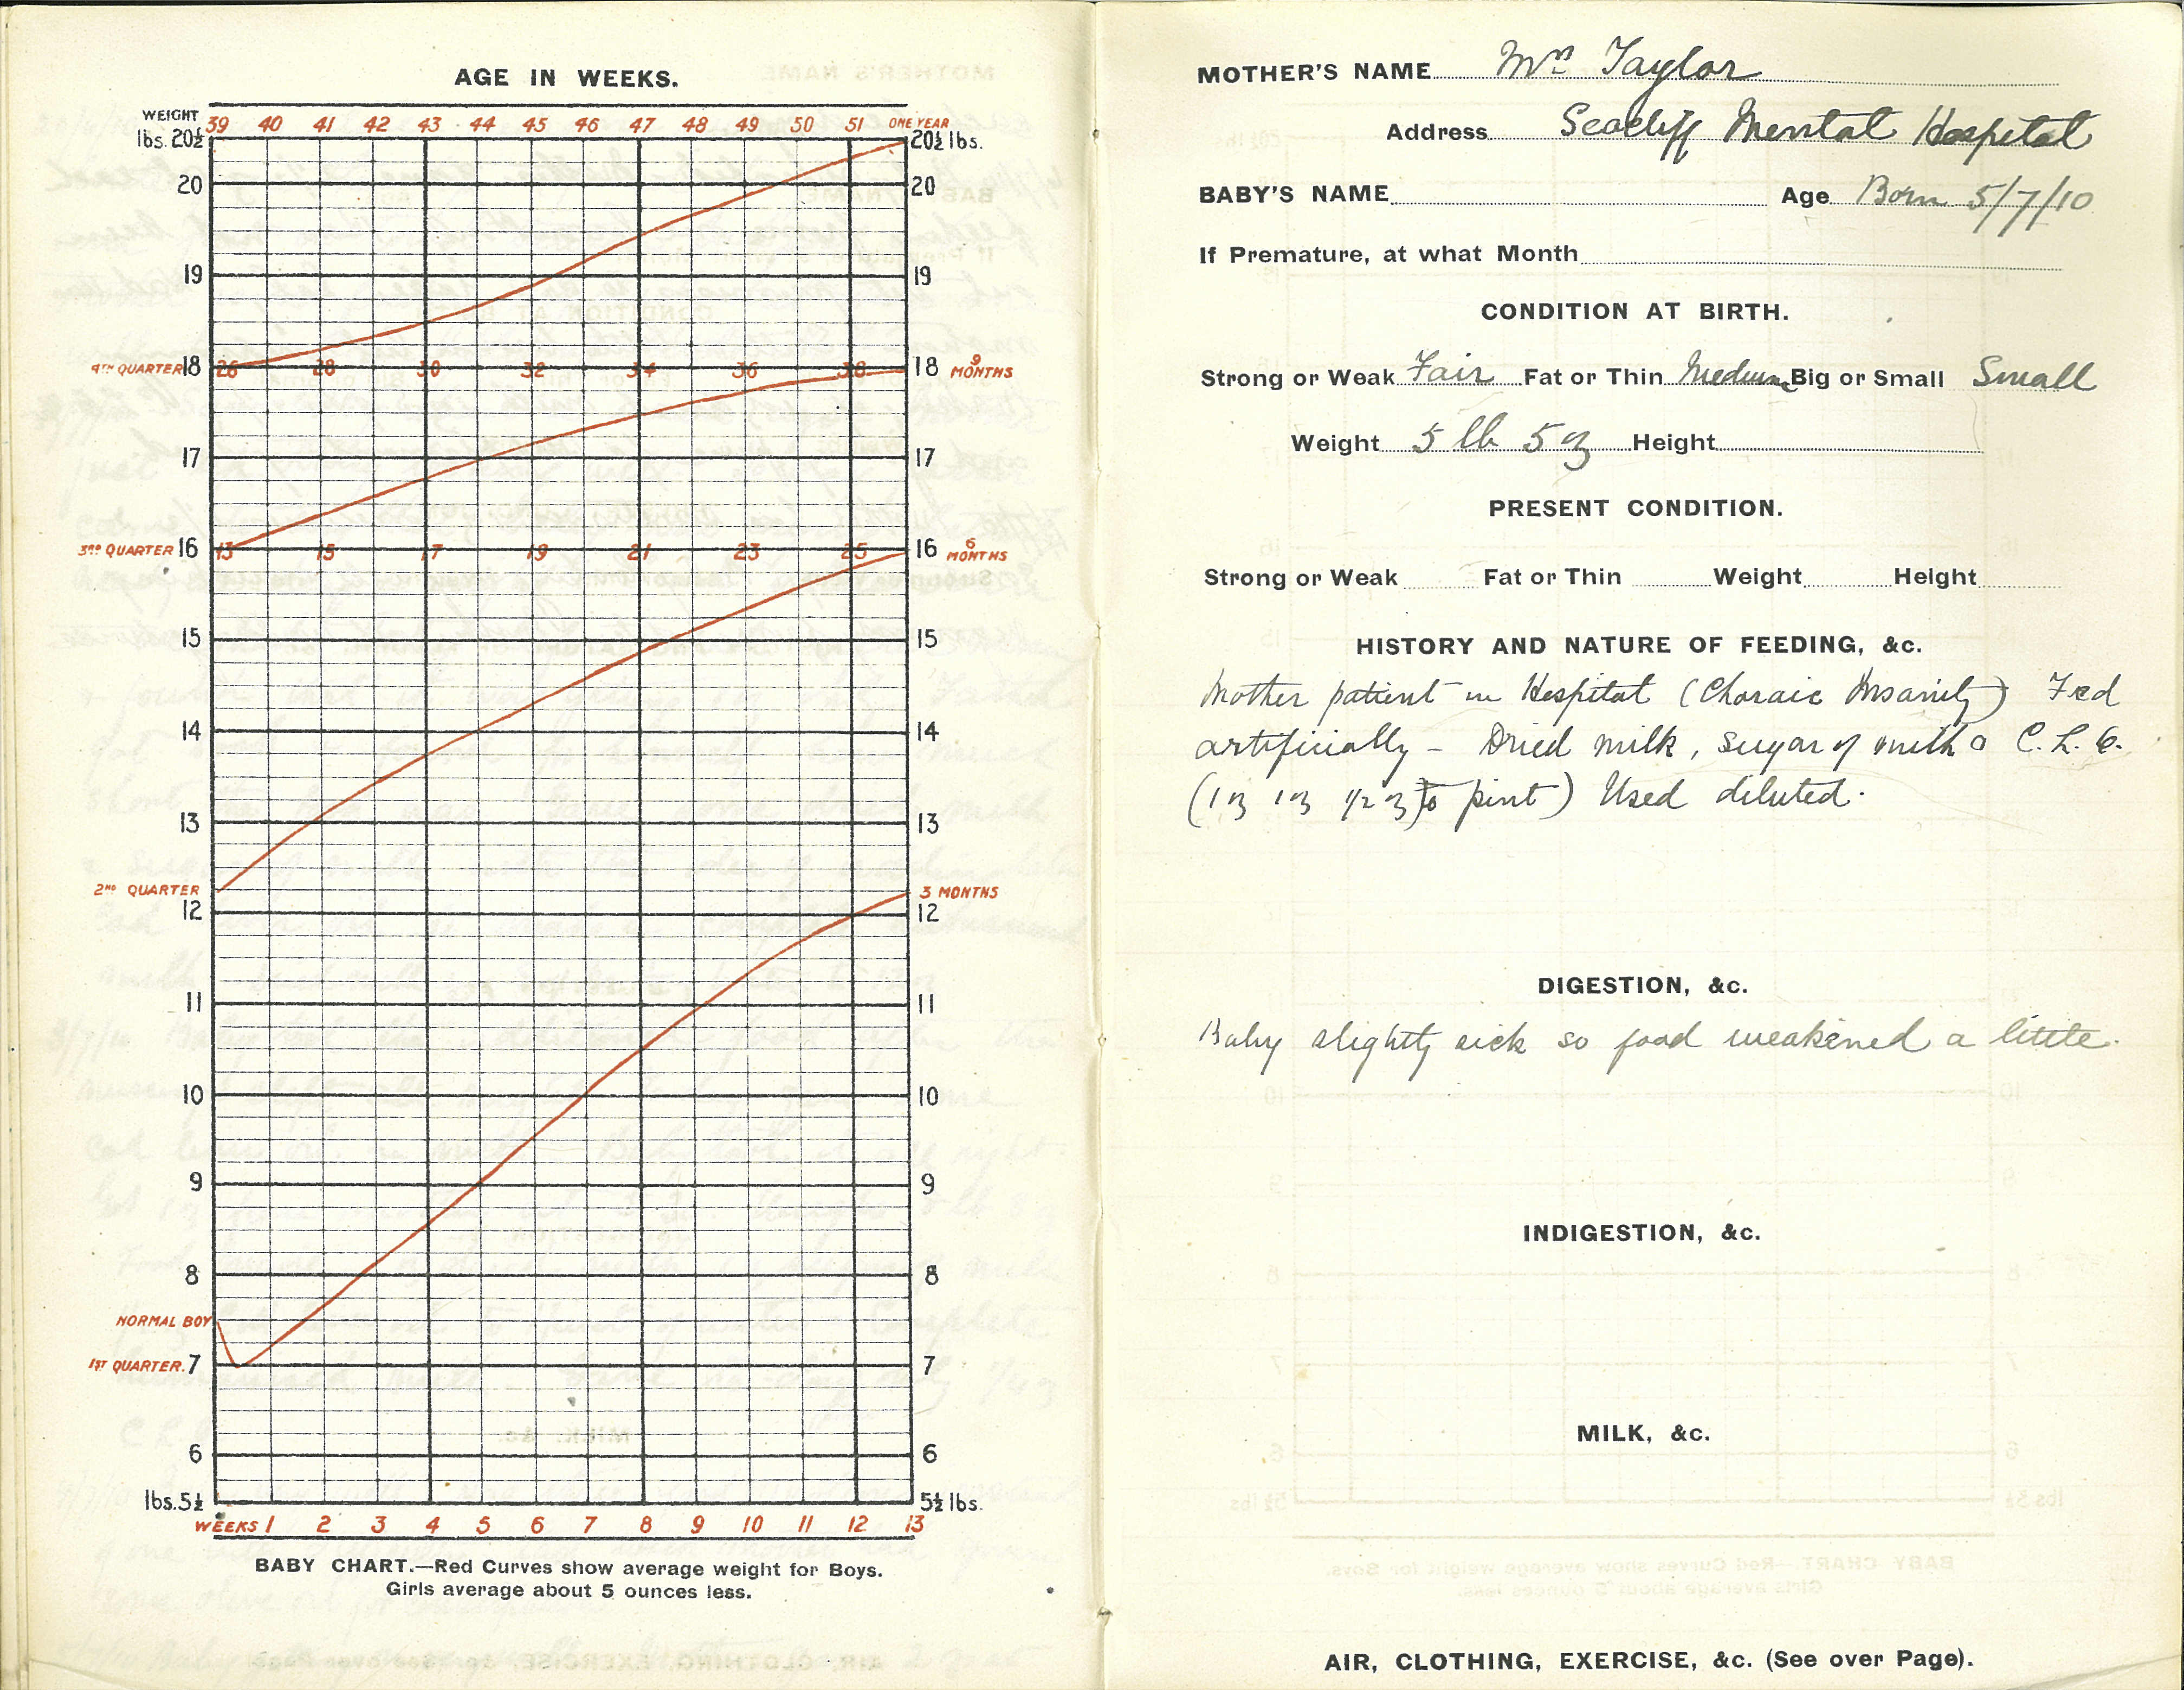 AGE IN WEEKS.
WEIGHT 39 40 41 42 43 44 45 46 47 48 49 50 51 ONE YEAR
lbs. 20½ 20½ lbs.
20 20
19 19
4TH QUARTER 18 26 28 30 32 34 36 38 18 9 MONTHS
17 17
3RD QUARTER 16 13 15 17 19 21 23 25 16 6 MONTHS
15 15
14 14
13 13
2ND QUARTER 3 MONTHS
12 12
11 11
10 10
9 9
8 8
NORMAL BOY
1ST QUARTER. 7 7
6 6
lbs. 5½ 5½ lbs.
WEEKS 1 2 3 4 5 6 7 8 9 10 11 12 13
BABY CHART.—Red Curves show average weight for Boys.
Girls average about 5 ounces less.
MOTHER'S NAME Mrs Taylor
Address Seacliff Mental Hospital
BABY'S NAME Age Born 5/7/10
If Premature, at what Month
CONDITION AT BIRTH.
Strong or Weak Fair Fat or Thin Medium Big or Small Small
Weight 5 lb 5 oz Height
PRESENT CONDITION.
Strong or Weak Fat or Thin Weight Height
HISTORY AND NATURE OF FEEDING, &c.
Mother patient in Hospital (Choraic Insanity) Fed
artificially - Dried milk, sugar of milk & C. L. O.
(1 oz 1 oz 1/2 oz) to pint) Used diluted.
DIGESTION, &c.
Baby slightly sick so food weakened a little.
INDIGESTION, &c.
MILK, &c.
AIR, CLOTHING, EXERCISE, &c. (See over Page).